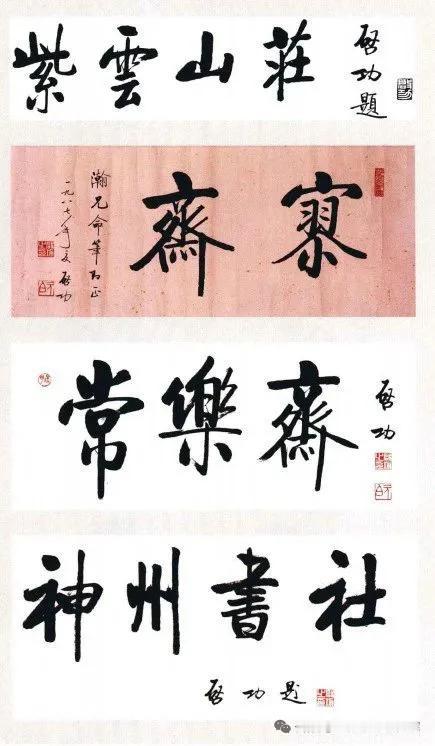 紫雲山莊
啓功題
寥齋
瀚兄命筆即正
一九八七年夏 啓功
常樂齋
啓功
神州書社
啓功題